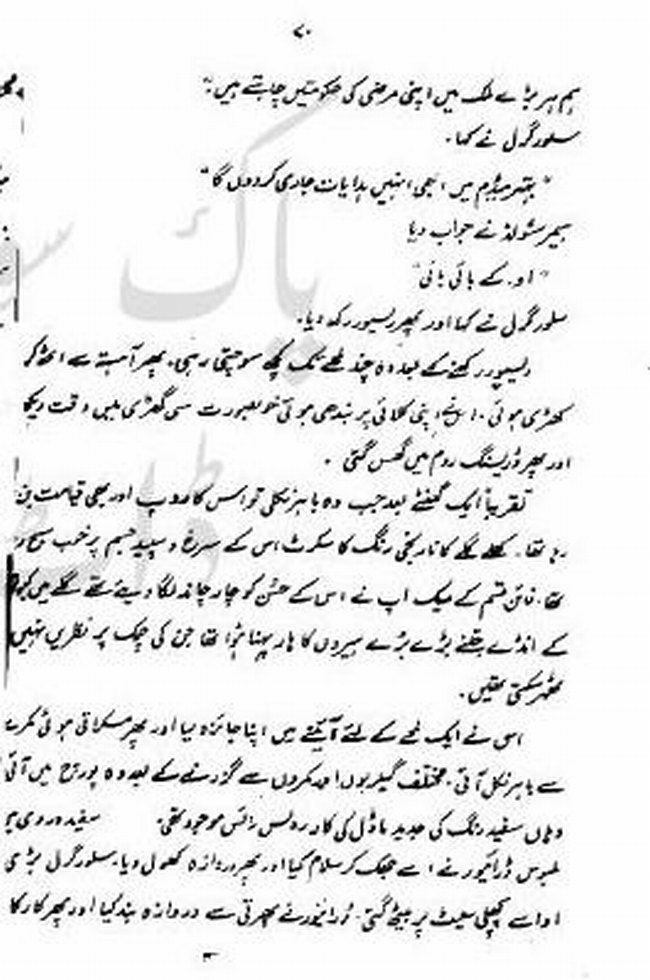 ۷۰
ہم ہر بڑے ملک میں اپنی مرضی کی حکومتیں چاہتے ہیں."
سلور گرل نے کہا.
" بہتر میڈم میں ابھی انہیں ہدایات جاری کر دوں گا "
ہیمر شولڈ نے جواب دیا
" او. کے بائی بائی "
سلور گرل نے کہا اور پھر ریسیور رکھ دیا.
ریسیور رکھنے کے بعد وہ چند لمحے تک کچھ سوچتی رہی. پھر آہستہ سے اٹھ کر
کھڑی ہوئی. اس نے اپنی کلائی پر بندھی ہوئی خوبصورت سی گھڑی میں وقت دیکھا
اور پھر ڈریسنگ روم میں گھس گئی.
تقریباً ایک گھنٹے بعد جب وہ باہر نکلی تو اس کا روپ اور بھی قیامت بن
رہا تھا. کھلے گلے کا نارنجی رنگ کا سکرٹ اس کے سرخ و سپید جسم پر خوب سج رہا
تھا. فائن قسم کے میک اپ نے اس کے حسن کو چار چاند لگا دیئے تھے گلے میں
کے انڈے جتنے بڑے بڑے ہیروں کا ہار پہنا ہوا تھا جن کی چمک پر نظریں نہیں
ٹھہر سکتی تھیں.
اس نے ایک لمحے کے لئے آئینے میں اپنا جائزہ لیا اور پھر مسکراتی ہوئی کمرے
سے باہر نکل آئی. مختلف گیلریوں اور کمروں سے گزرنے کے بعد وہ پورچ میں آئی
وہاں سفید رنگ کی جدید ماڈل کی کار رولس رائس موجود تھی. سفید وردی میں
ملبوس ڈرائیور نے اسے جھک کر سلام کیا اور پھر دروازہ کھول دیا. سلور گرل بڑی
ادا سے پچھلی سیٹ پر بیٹھ گئی. ڈرائیور نے پھرتی سے دروازہ بند کیا اور پھر کار کا
پاک